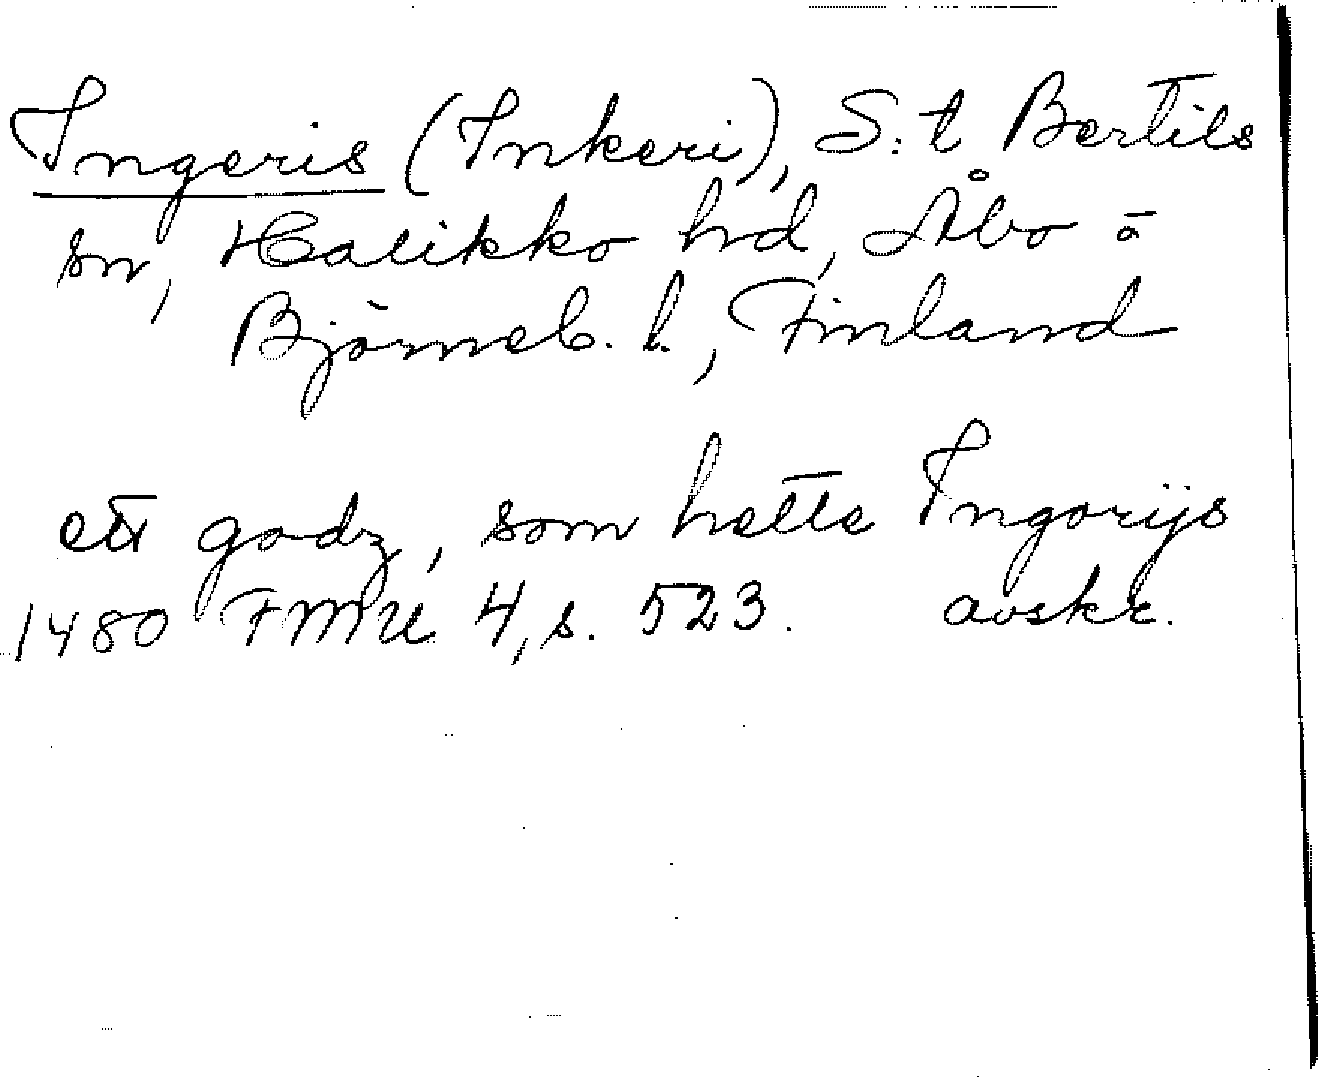 Ingeris (Inkeri), S:t Bertils
sn, Halikko hd, Åbo o
Björneb. l., Finland
ett godz, som hette Ingorijs
1480 FMU 4, s. 523. avskr.